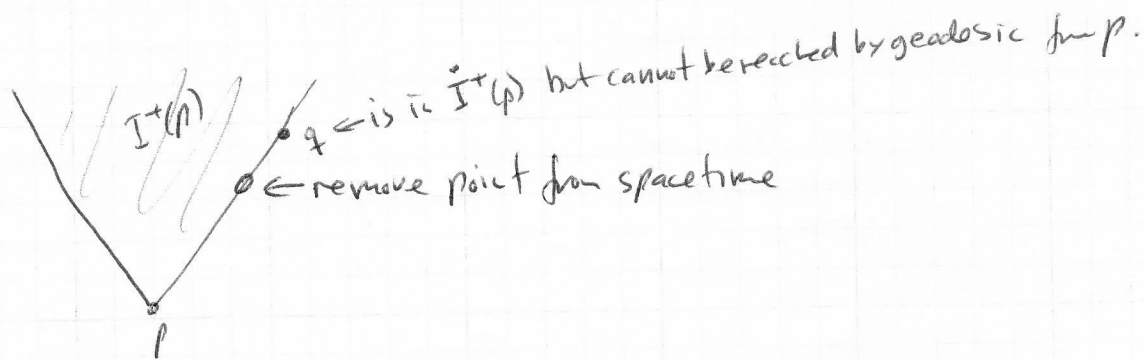 I⁺(p)
q ← is in İ⁺(p) but cannot be reached by geodesic from p.
← remove point from spacetime
p